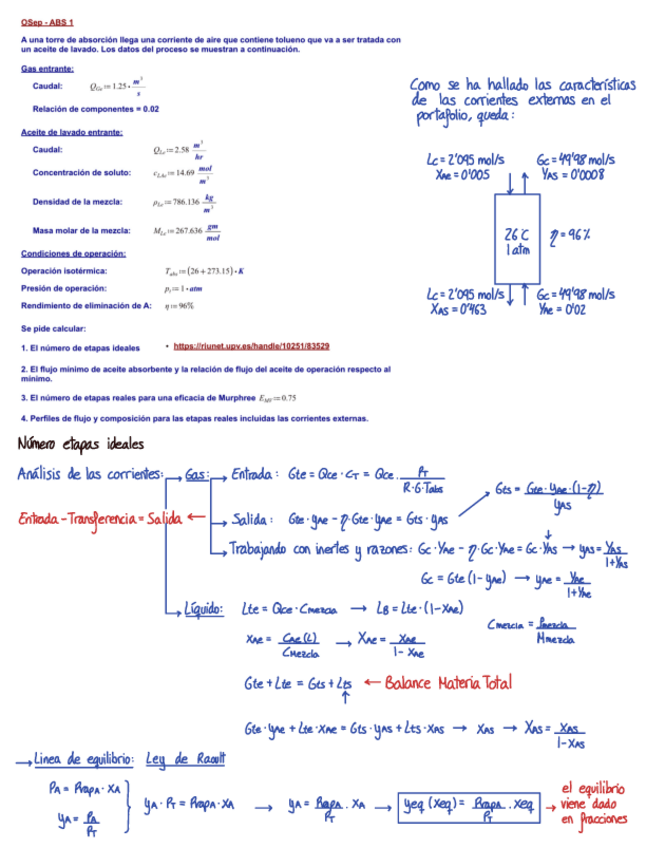 OSep - ABS 1
A una torre de absorción llega una corriente de aire que contiene tolueno que va a ser tratada con
un aceite de lavado. Los datos del proceso se muestran a continuación.
Gas entrante:
Caudal: Q_Ge := 1.25 · m³/s
Relación de componentes = 0.02
Aceite de lavado entrante:
Caudal: Q_Le := 2.58 m³/hr
Concentración de soluto: c_LAe := 14.69 mol/m³
Densidad de la mezcla: ρ_Le := 786.136 kg/m³
Masa molar de la mezcla: M_Le := 267.636 gm/mol
Condiciones de operación:
Operación isotérmica: T_abs := (26 + 273.15) · K
Presión de operación: p_t := 1 · atm
Rendimiento de eliminación de A: η := 96%
Se pide calcular:
1. El número de etapas ideales • https://riunet.upv.es/handle/10251/83529
2. El flujo mínimo de aceite absorbente y la relación de flujo del aceite de operación respecto al
mínimo.
3. El número de etapas reales para una eficacia de Murphree E_MV := 0.75
4. Perfiles de flujo y composición para las etapas reales incluidas las corrientes externas.
Como se ha hallado las características
de las corrientes externas en el
portafolio, queda:
Lc = 2'095 mol/s Gc = 49'98 mol/s
XAe = 0'005 YAS = 0'0008
26 C
1 atm
η = 96%
Lc = 2'095 mol/s Gc = 49'98 mol/s
XAS = 0'463 YAe = 0'02
Número etapas ideales
Análisis de las corrientes: → Gas: → Entrada: Gte = QGe · CT = QGe · PT / R·G·Tabs
Gts = Gte · yAe · (1-η) / yAS
Entrada - Transferencia = Salida ← → Salida: Gte · yAe - η · Gte · yAe = Gts · yAS
→ Trabajando con inertes y razones: Gc · YAe - η · Gc · YAe = Gc · YAS → yAS = YAS / 1+YAS
Gc = Gte (1 - yAe) → yAe = YAe / 1+YAe
→ Líquido: Lte = QGe · Cmezcla → LB = Lte · (1-XAe)
Cmezcla = ρmezcla / Mmezcla
XAe = CAe(L) / Cmezcla → XAe = XAe / 1-XAe
Gte + Lte = Gts + Lts ← Balance Materia Total
Gte · yAe + Lte · XAe = Gts · yAS + Lts · XAS → XAS → XAS = XAS / 1-XAS
→ Linea de equilibrio: Ley de Raoult
PA = PvapA · XA
yA = PA / PT
yA · PT = PvapA · XA → yA = PvapA / PT · XA → yeq (Xeq) = PvapA / PT · Xeq
→ el equilibrio
viene dado
en fracciones